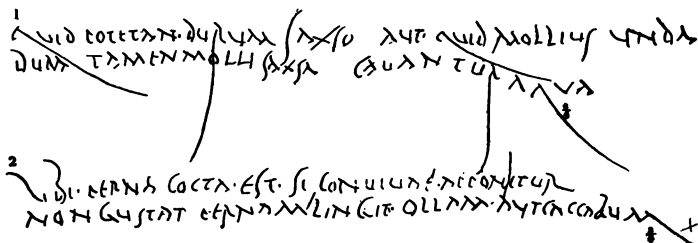 1 quid pote tan·durum saxso aut·quid mollius unda
dura tamen molli saxsa cavantur aqua
2 ubi·perna cocta·est·si convivae·apponitur
non gustat pernam lingit ollam·aut caccabum